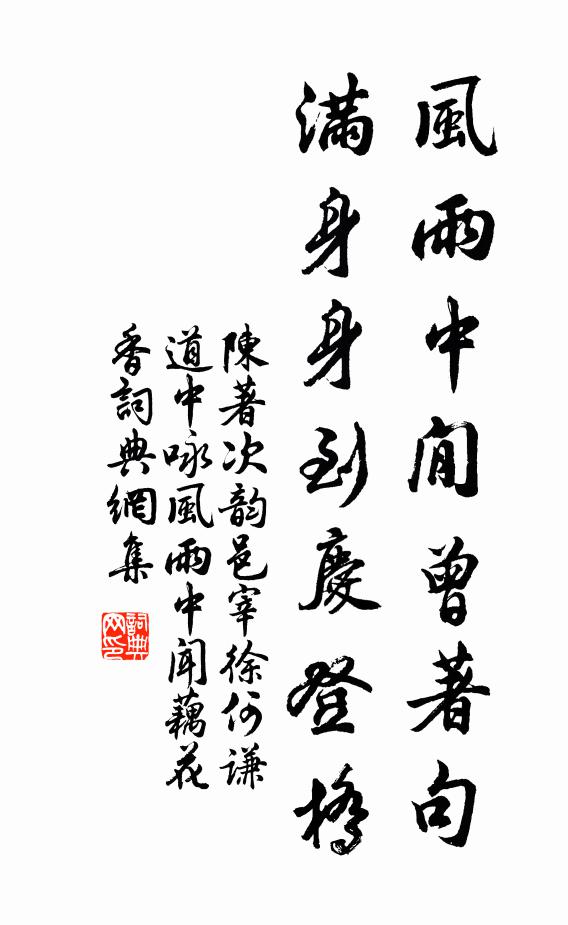 風雨中間曾著句
滿身身到慶登橋
陳著次韵邑宰徐何謙
道中咏風雨中聞藕花
香詞典網集
詞典
网印